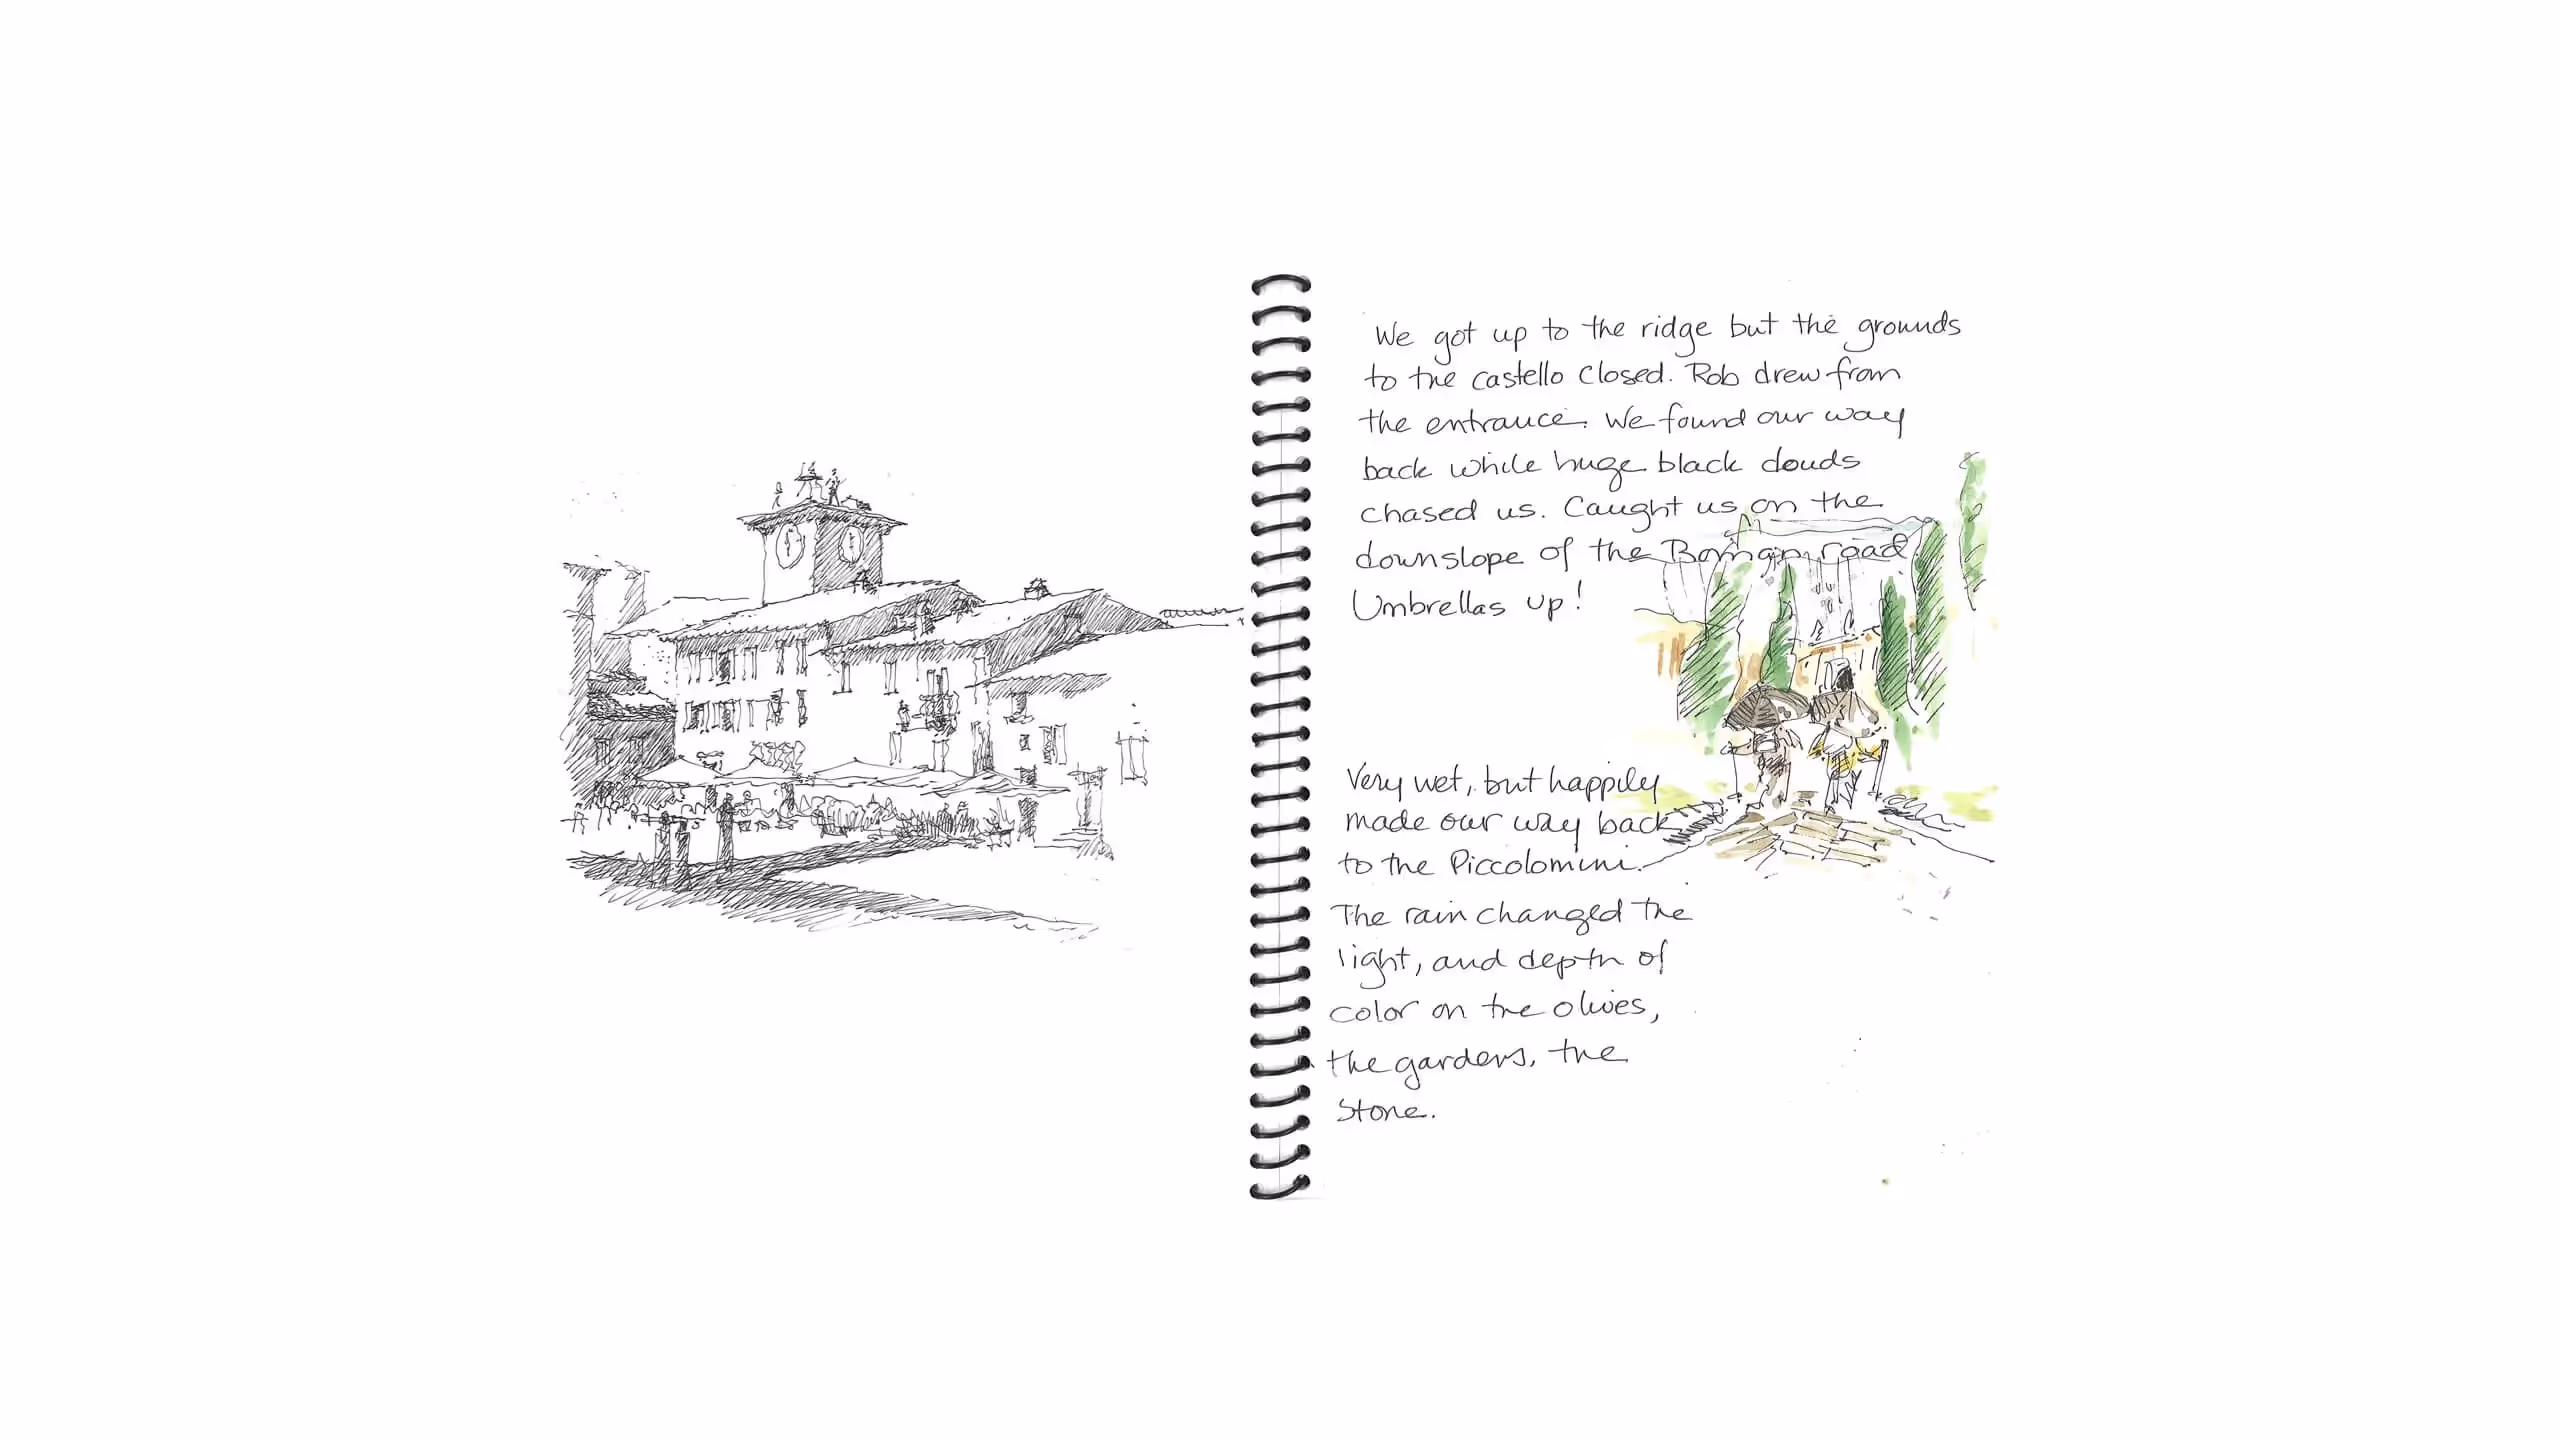 We got up to the ridge but the grounds
to the castello closed. Rob drew from
the entrance. We found our way
back while huge black clouds
chased us. Caught us on the
downslope of the Roman road.
Umbrellas up!
Very wet, but happily
made our way back
to the Piccolomini.
The rain changed the
light, and depth of
color on the olives,
the gardens, the
stone.